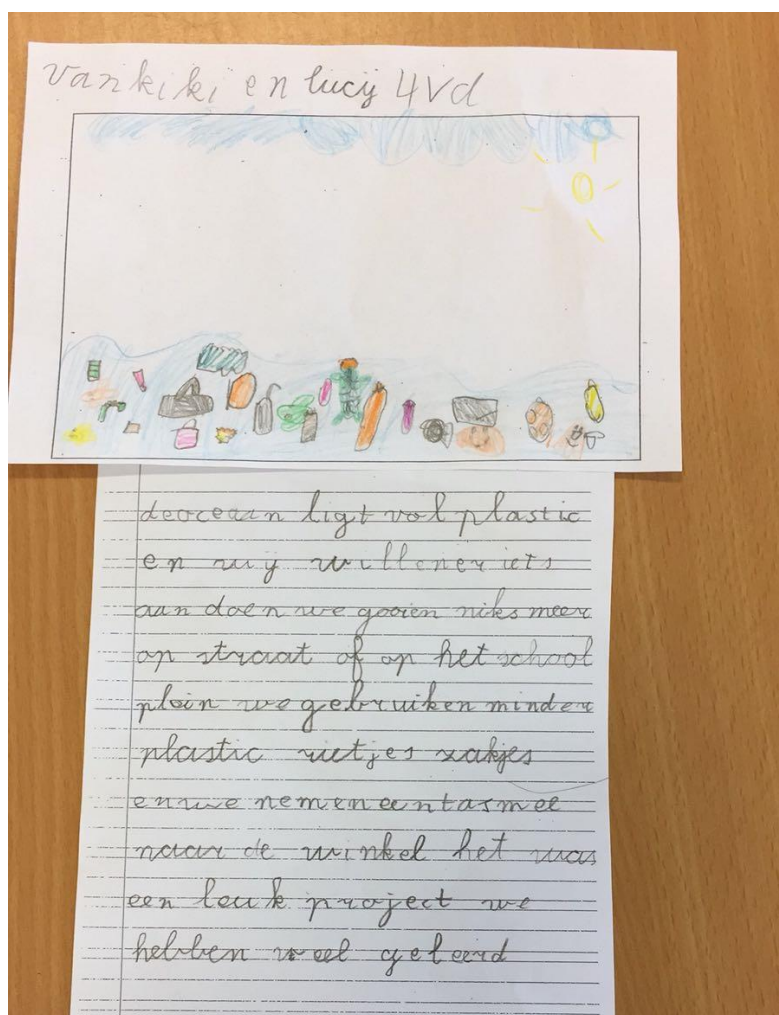 van kiki en lucij 4vd
de oceaan ligt vol plastic
en wij willen er iets
aan doen we gooien niks meer
op straat of op het school
plein we gebruiken minder
plastic rietjes zakjes
en we nemen een tas mee
naar de winkel het was
een leuk project we
hebben veel geleerd